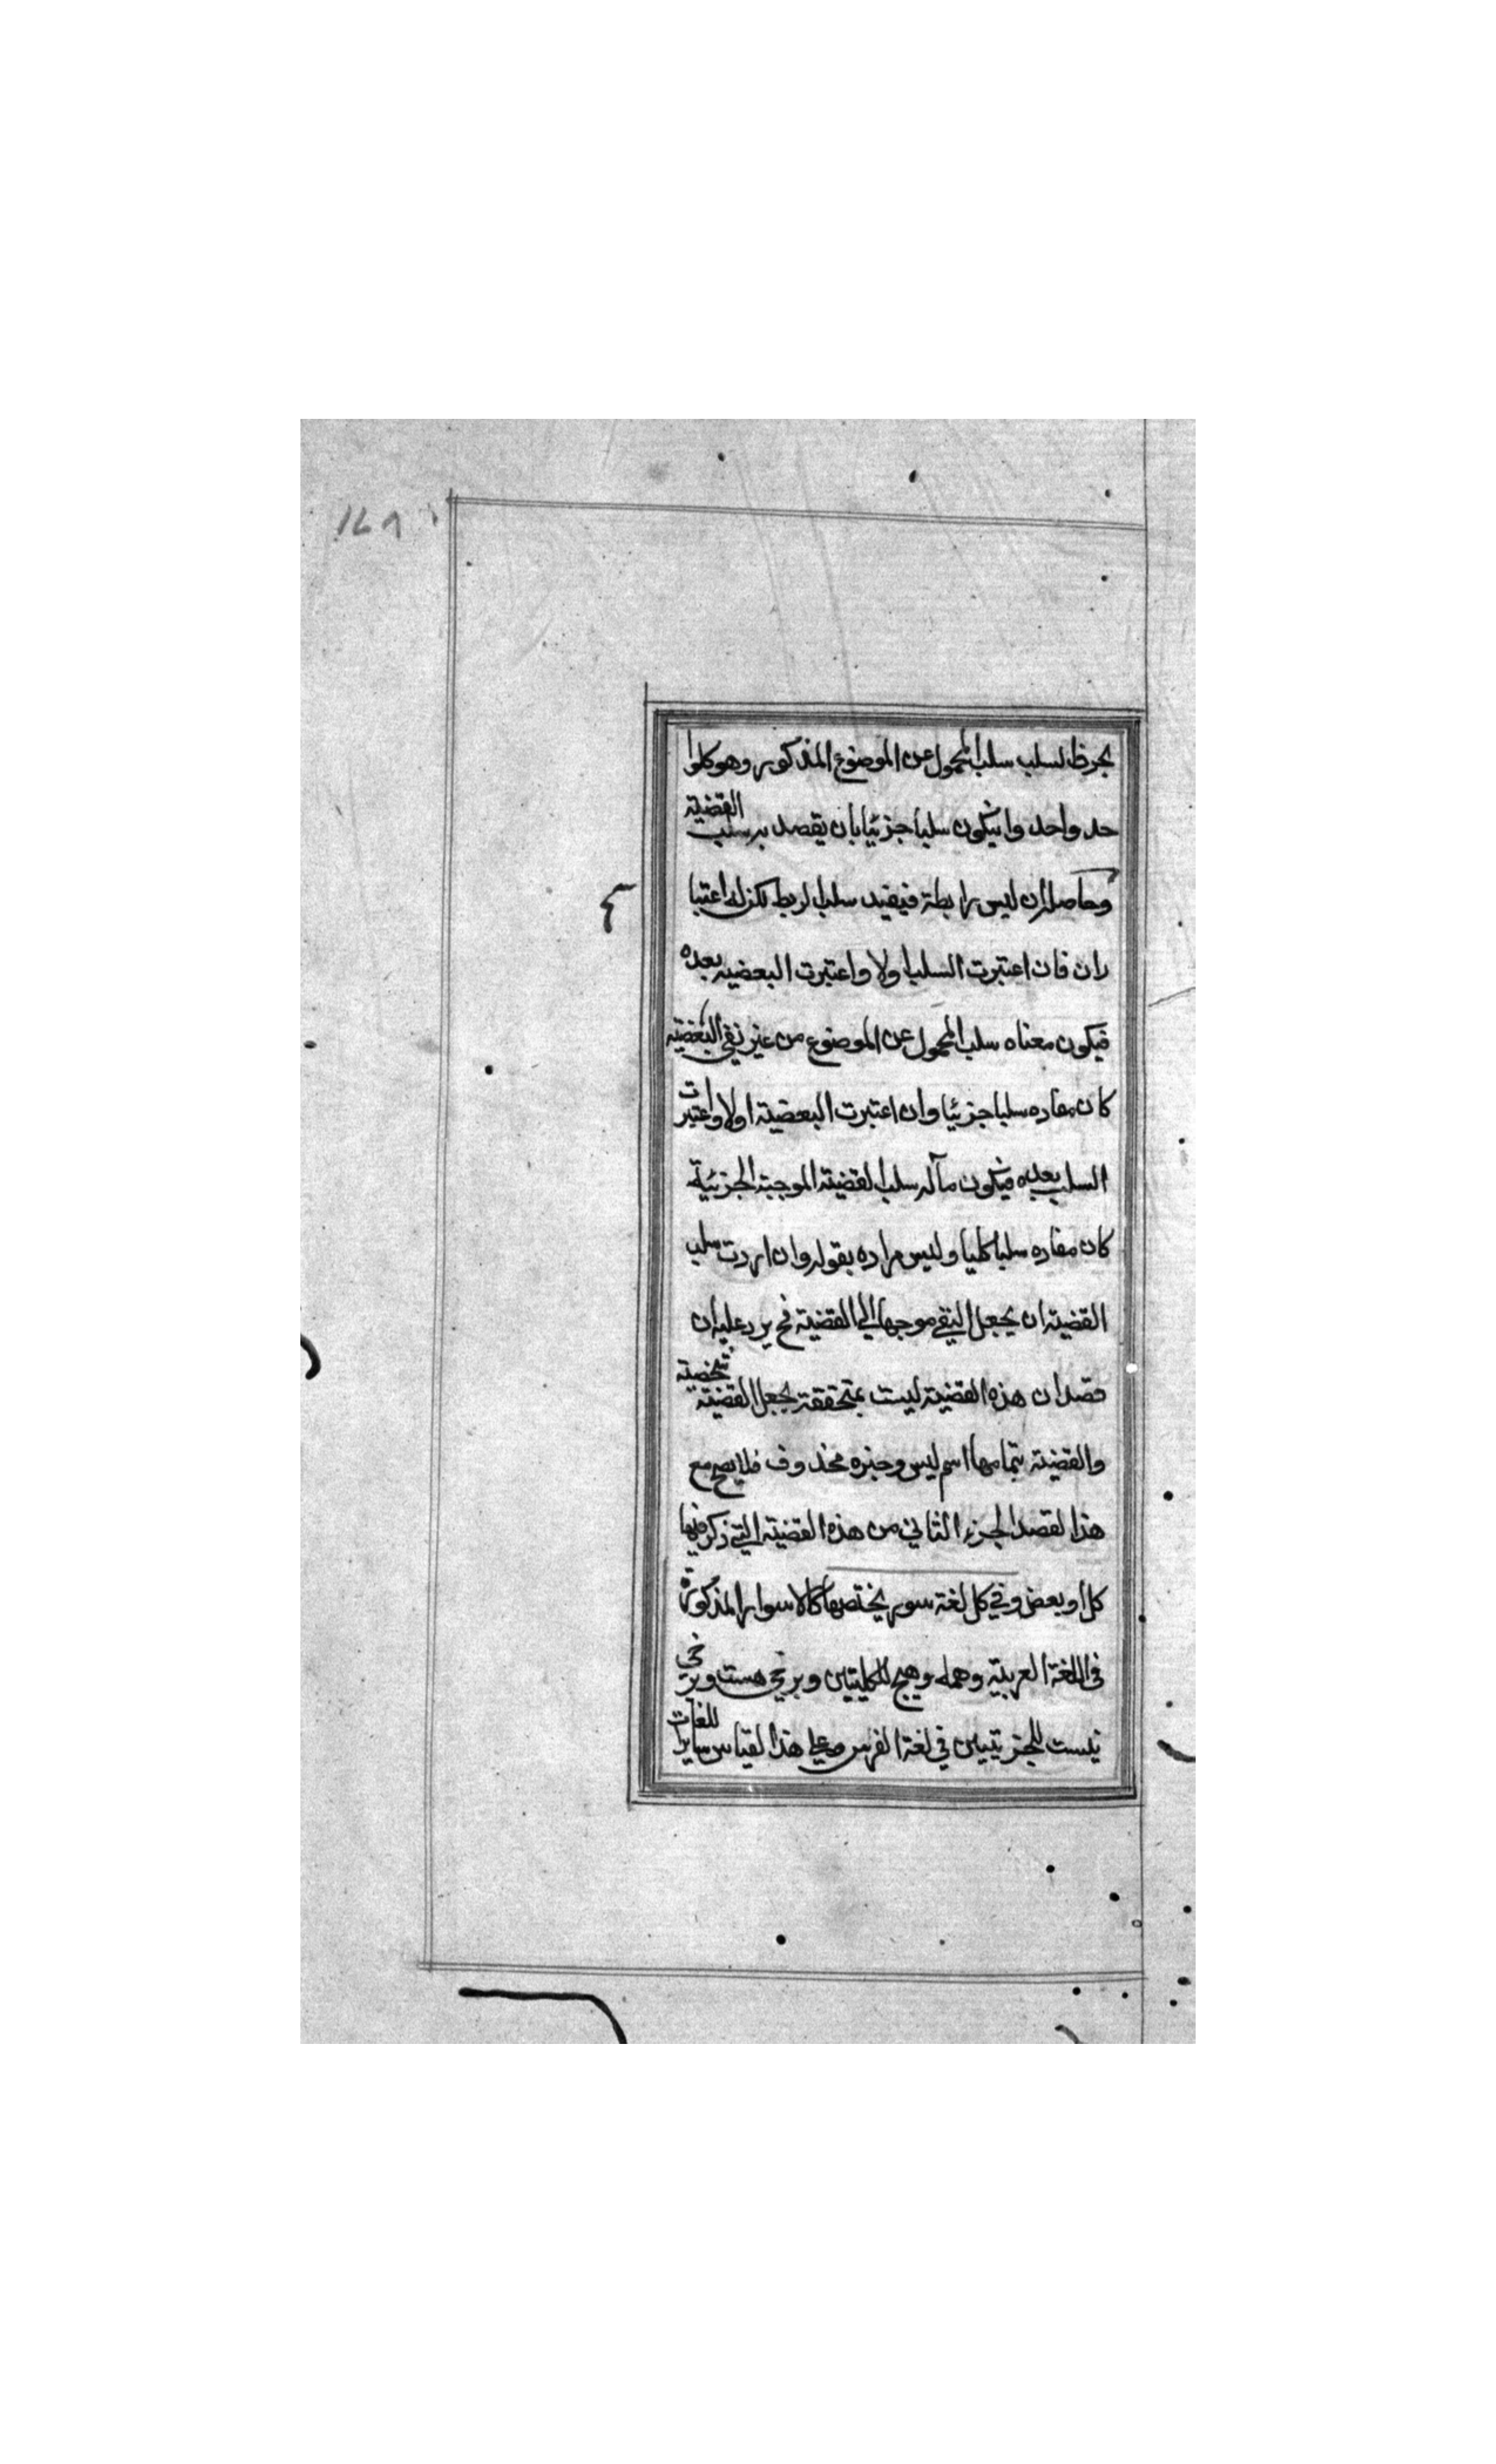 ١٤٨
بحرف السلب سلب المحمول عن الموضوع المذكور وهو كلوا
حد واحد وان يكون سلبا جزئيا بان يقصد به سلب القضية
وحاصله ان ليس رابطة فيفيد سلب الربط لكن له اعتبا
ران فان اعتبرت السلب اولا واعتبرت البعضيه بعده
فيكون معناه سلب المحمول عن الموضوع من غير نفي البعضية
كان مفاده سلبا جزئيا وان اعتبرت البعضية اولا واعتبرت
السلب بعده فيكون مآله سلب القضية الموجبة الجزئية
كان مفاده سلبا كليا وليس مراده بقوله وان اردت سلب
القضية ان يجعل النفي موجها الي القضية فح يرد عليه ان
قصد ان هذه القضية ليست بمتحققة يجعل القضية شخصية
والقضية بتمامها اسم ليس وخبره محذوف فلا يصح مع
هذا القصد الجزء الثاني من هذه القضية التي ذكر فيها
كل او بعض وفي كل لغة سور يختص بها كالاسوار المذكورة
في اللغة العربية وهمه وهيچ للكليتين وبرخي هست وبرخي
نيست للجزئيتين في لغة الفرس وعلي هذا القياس ساير اللغات